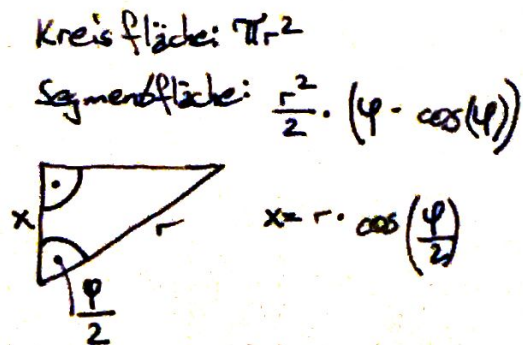 Kreisfläche: πr²
Segmentfläche: r²/2 · (φ - cos(φ))
x r x = r · cos(φ/2)
φ/2